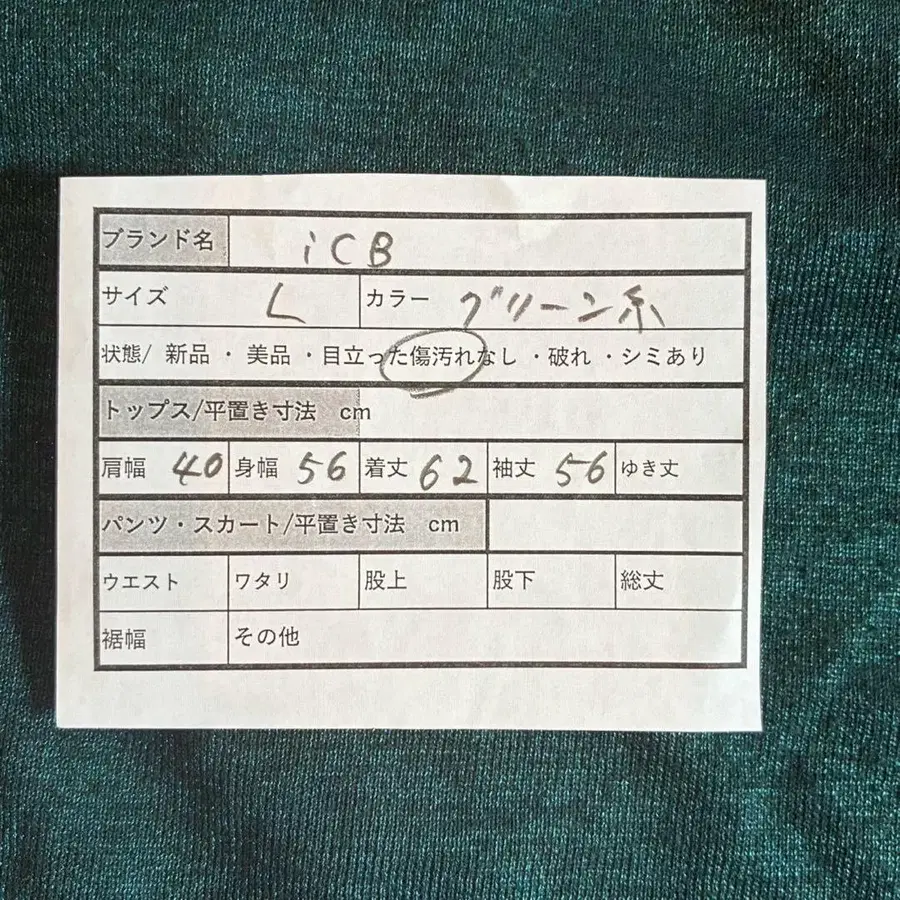 ブランド名 iCB
サイズ L カラー グリーン系
状態/ 新品 ・ 美品 ・目立った傷汚れなし ・破れ ・シミあり
トップス/平置き寸法 cm
肩幅 40 身幅 56 着丈 62 袖丈 56 ゆき丈
パンツ・スカート/平置き寸法 cm
ウエスト ワタリ 股上 股下 総丈
裾幅 その他